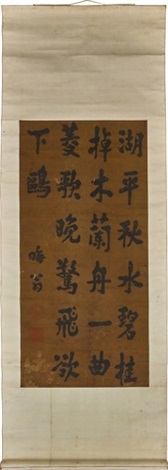 湖平秋水碧桂
棹木蘭舟一曲
菱歌晚驚飛欲
下鷗
晦翁